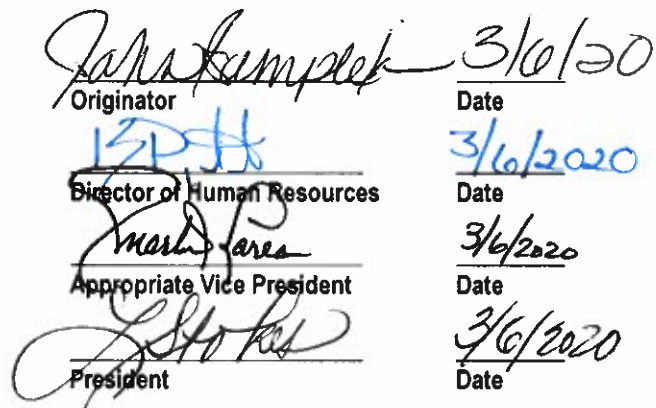 3/6/20
Originator Date
3/6/2020
Director of Human Resources Date
3/6/2020
Appropriate Vice President Date
L Stokes 3/6/2020
President Date